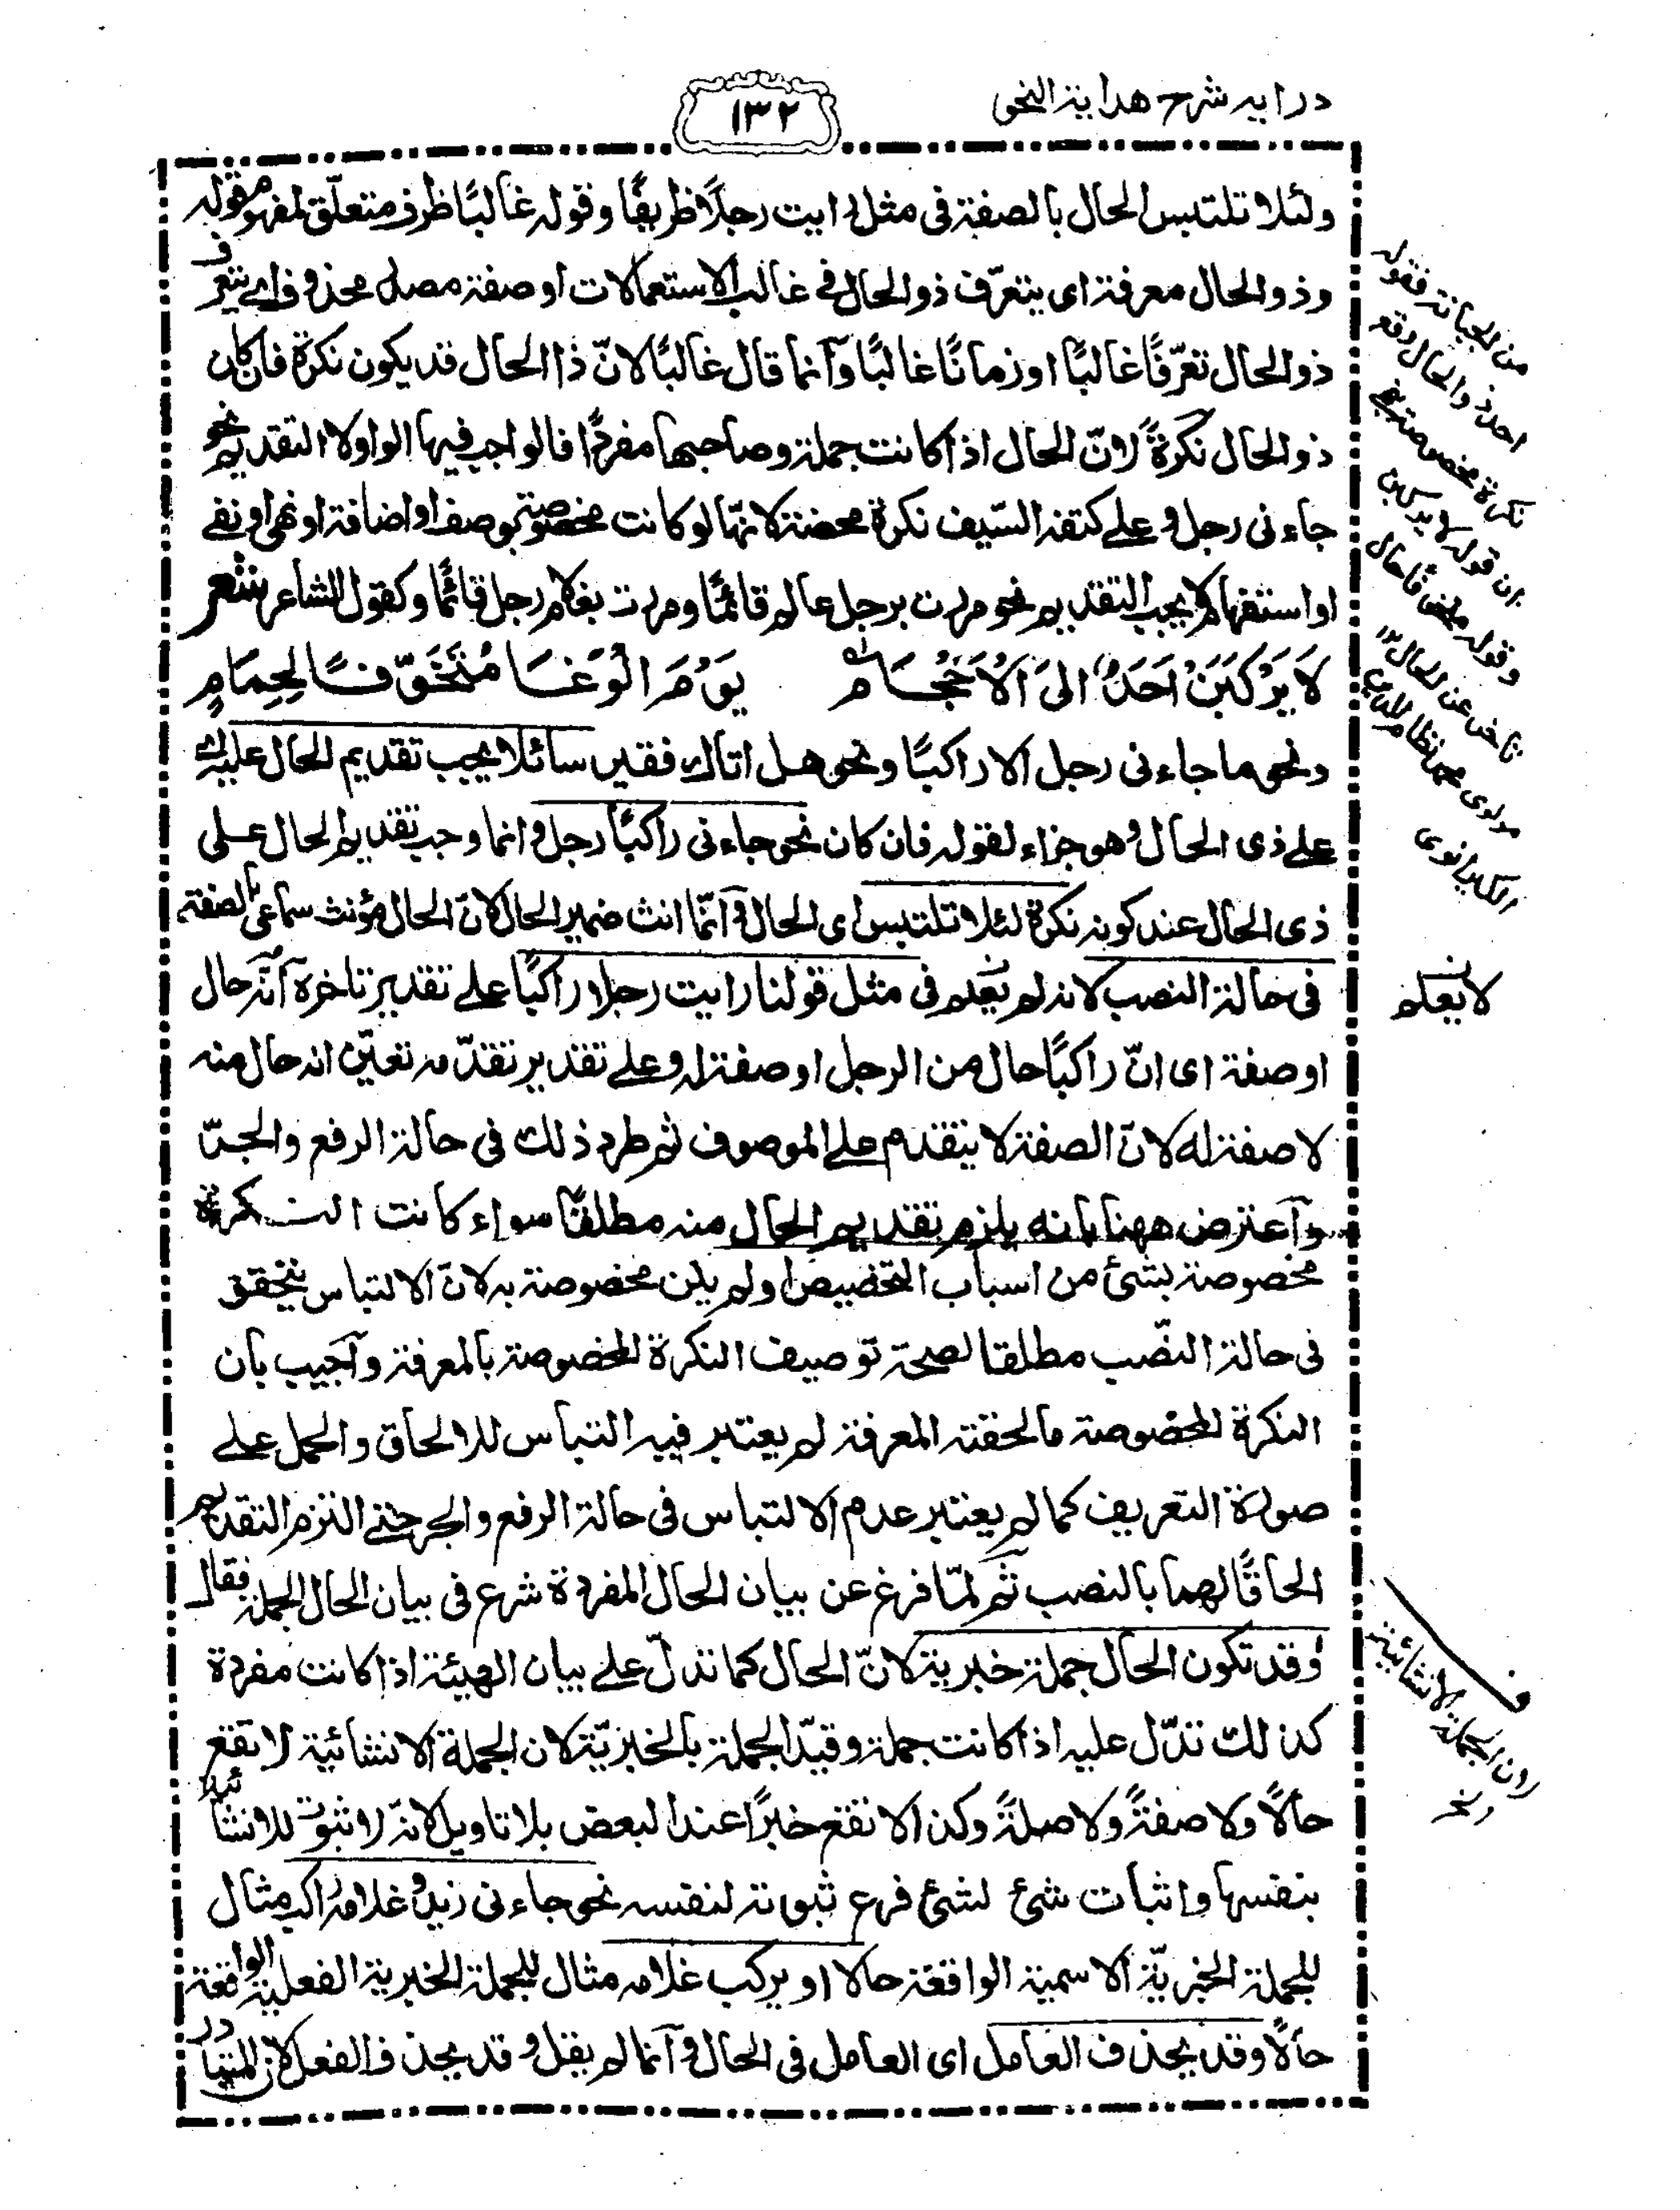 درایہ شرح هدایة النحو
١٣٢
ولئلا تلتبس الحال بالصفة فى مثل رایت رجلًا ظریفًا وقوله غالبًا ظرف متعلّق لمفهوم قوله
وذو الحال معرفة اى یتعرّف ذو الحال فى غالب الاستعمالات او صفة مصدر محذوف اى یتعرف
ذو الحال تعرّفًا غالبًا او زمانًا غالبًا وآنما قال غالبًا لانّ ذا الحال قد یکون نکرة فان کان
ذو الحال نکرةً لانّ الحال اذا کانت جملة وصاحبها مفردًا فالواجب فیها الواو لا التقدیم نحو
جاءنى رجل وعلى کتفه السّیف نکرة محضة لانّها لو کانت مخصوصة بوصف او اضافة او نهى او نفى
او استفهام لا یجب التقدیم نحو مررت برجل عالم قائمًا ومررت بغلام رجل قائمًا وکقول الشاعر شعر
لَا یَرْکَبَنْ اَحَدٌ اِلىَ الْاَحْجَامِ یَوْمَ الْوَغَا مُتَخَوِّفًا لِحِمَامٍ
ونحو ما جاءنى رجل الا راکبًا ونحو هل اتاك فقیر سائلا یجب تقدیم الحال علیه اى
على ذى الحال وهو جزاء لقوله فان کان نحو جاءنى راکبًا رجل وانما وجب تقدیم الحال على
ذى الحال عند کونه نکرة لئلا تلتبس اى الحال وآنّما انث ضمیر الحال لانّ الحال مؤنث سماعى بالصفة
فى حالة النصب لانه لم یعلم فى مثل قولنا رایت رجلا راکبًا على تقدیر تاخره آنّه حال
او صفة اى انّ راکبًا حال من الرجل او صفة له وعلى تقدیر تقدّمه تعیّن انه حال منه
لا صفة له لانّ الصفة لا یتقدم على الموصوف ثم طرد ذلك فى حالة الرفع والجرّ
وآعترض ههنا بانه یلزم تقدیم الحال منه مطلقًا سواء کانت النکرة
مخصوصة بشئ من اسباب التخصیص او لم یکن مخصوصة به لانّ الالتباس یتحقق
فى حالة النصّب مطلقا لصحة توصیف النکرة المخصوصة بالمعرفة وآجیب بان
النکرة المخصوصة ما لحقته المعرفة لم یعتبر فیه التباس للالحاق والحمل على
صورة التعریف کما لم یعتبر عدم الالتباس فى حالة الرفع والجر حتى التزم التقدیم
الحاقًا لهما بالنصب ثم لمّا فرغ عن بیان الحال المفردة شرع فى بیان الحال الجملة فقال
وقد تکون الحال جملة خبریة لانّ الحال کما تدلّ على بیان الهیئة اذا کانت مفردة
کذلك تدّل علیه اذا کانت جملة وقیّد الجملة بالخبریّة لان الجملة الانشائیة لا تقع
حالًا ولا صفةً ولا صلةً وکذا لا تقع خبرًا عند البعض بلا تاویل لانّه لا ثبوت للانشائیة
بنفسها واثبات شئ لشئ فرع ثبوته لنفسه نحو جاءنى زید وغلامه راکب مثال
للجملة الخبریّة الاسمیة الواقعة حالا او یرکب غلامه مثال للجملة الخبریة الفعلیة الواقعة
حالًا وقد یحذف العامل اى العامل فى الحال وآنما لم یقل وقد یحذف الفعل لان المتبادر
من المجانة فقوله
احد ذو الحال وقع
نکرة مخصوصة
ان قوله لا یرکبن
وقوله متخوفًا حال
تاخر عن الحال
مولوى محمد نظام الدین
الکیرانوى
لا یعلم
لان الجملة الانشائیة
الخ